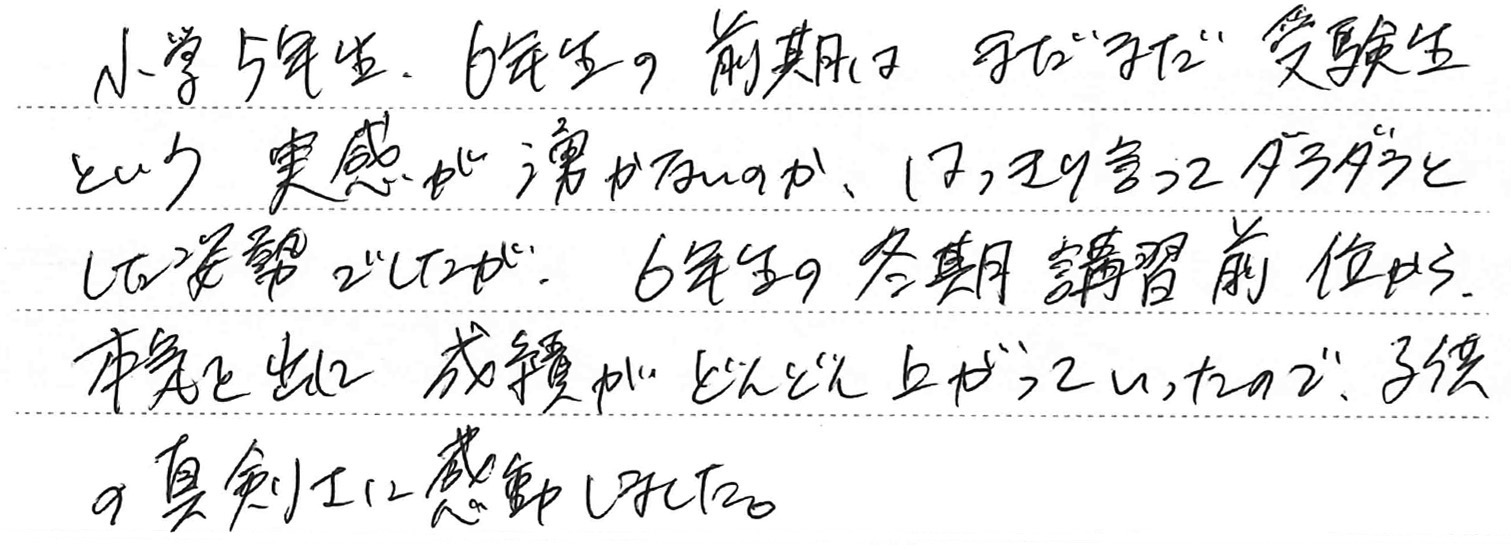 小学5年生、6年生の前期はまだまだ受験生
という実感が湧かないのか、はっきり言ってダラダラと
した姿勢でしたが、6年生の冬期講習前位から、
本気を出して成績がどんどん上がっていったので、子供
の真剣さに感動しました。